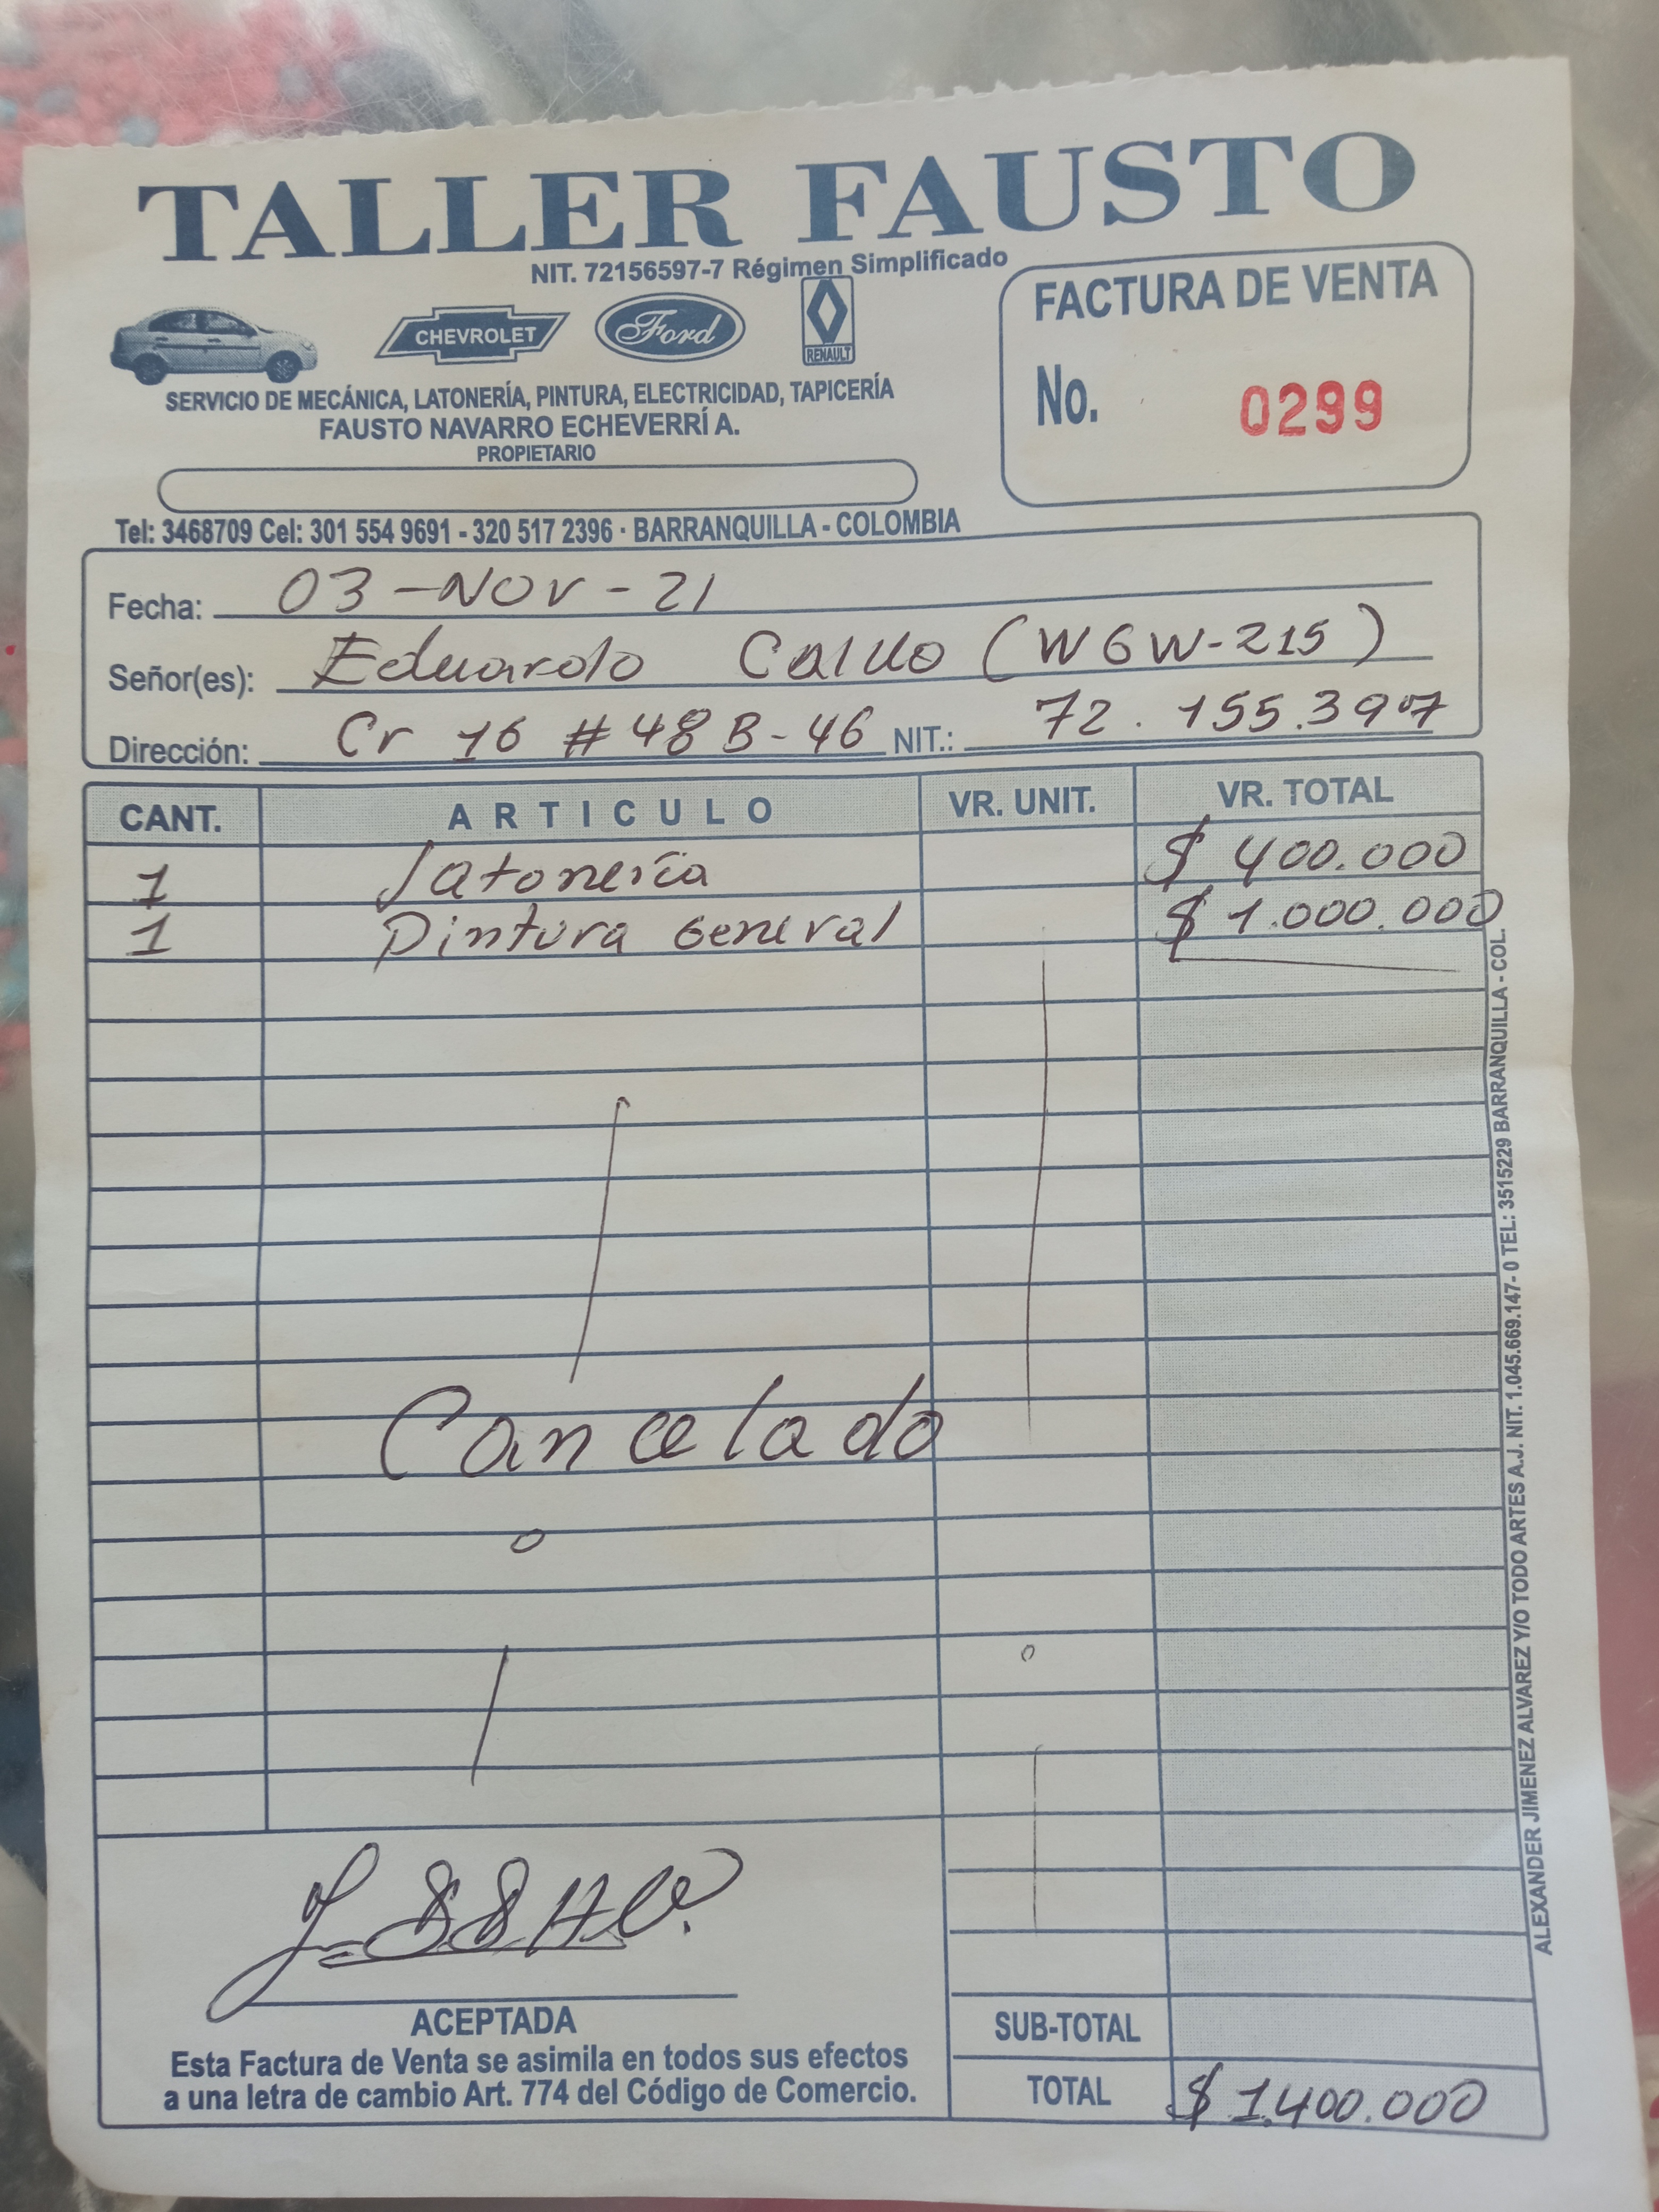 TALLER FAUSTO
NIT. 72156597-7 Régimen Simplificado
CHEVROLET Ford RENAULT
FACTURA DE VENTA
No. 0299
SERVICIO DE MECÁNICA, LATONERÍA, PINTURA, ELECTRICIDAD, TAPICERÍA
FAUSTO NAVARRO ECHEVERRÍ A.
PROPIETARIO
Tel: 3468709 Cel: 301 554 9691 - 320 517 2396 · BARRANQUILLA - COLOMBIA
Fecha: 03-NOV-21
Señor(es): Eduardo (WGW-215)
Dirección: Cr 16 # 48B-46 NIT.: 72.155.397
CANT. ARTICULO VR. UNIT. VR. TOTAL
1 latonería $ 400.000
1 Pintura General $ 1.000.000
Cancelado
ACEPTADA
Esta Factura de Venta se asimila en todos sus efectos
a una letra de cambio Art. 774 del Código de Comercio.
SUB-TOTAL
TOTAL $ 1.400.000
ALEXANDER JIMENEZ ALVAREZ Y/O TODO ARTES A.J. NIT. 1.045.669.147- 0 TEL: 3515229 BARRANQUILLA - COL.